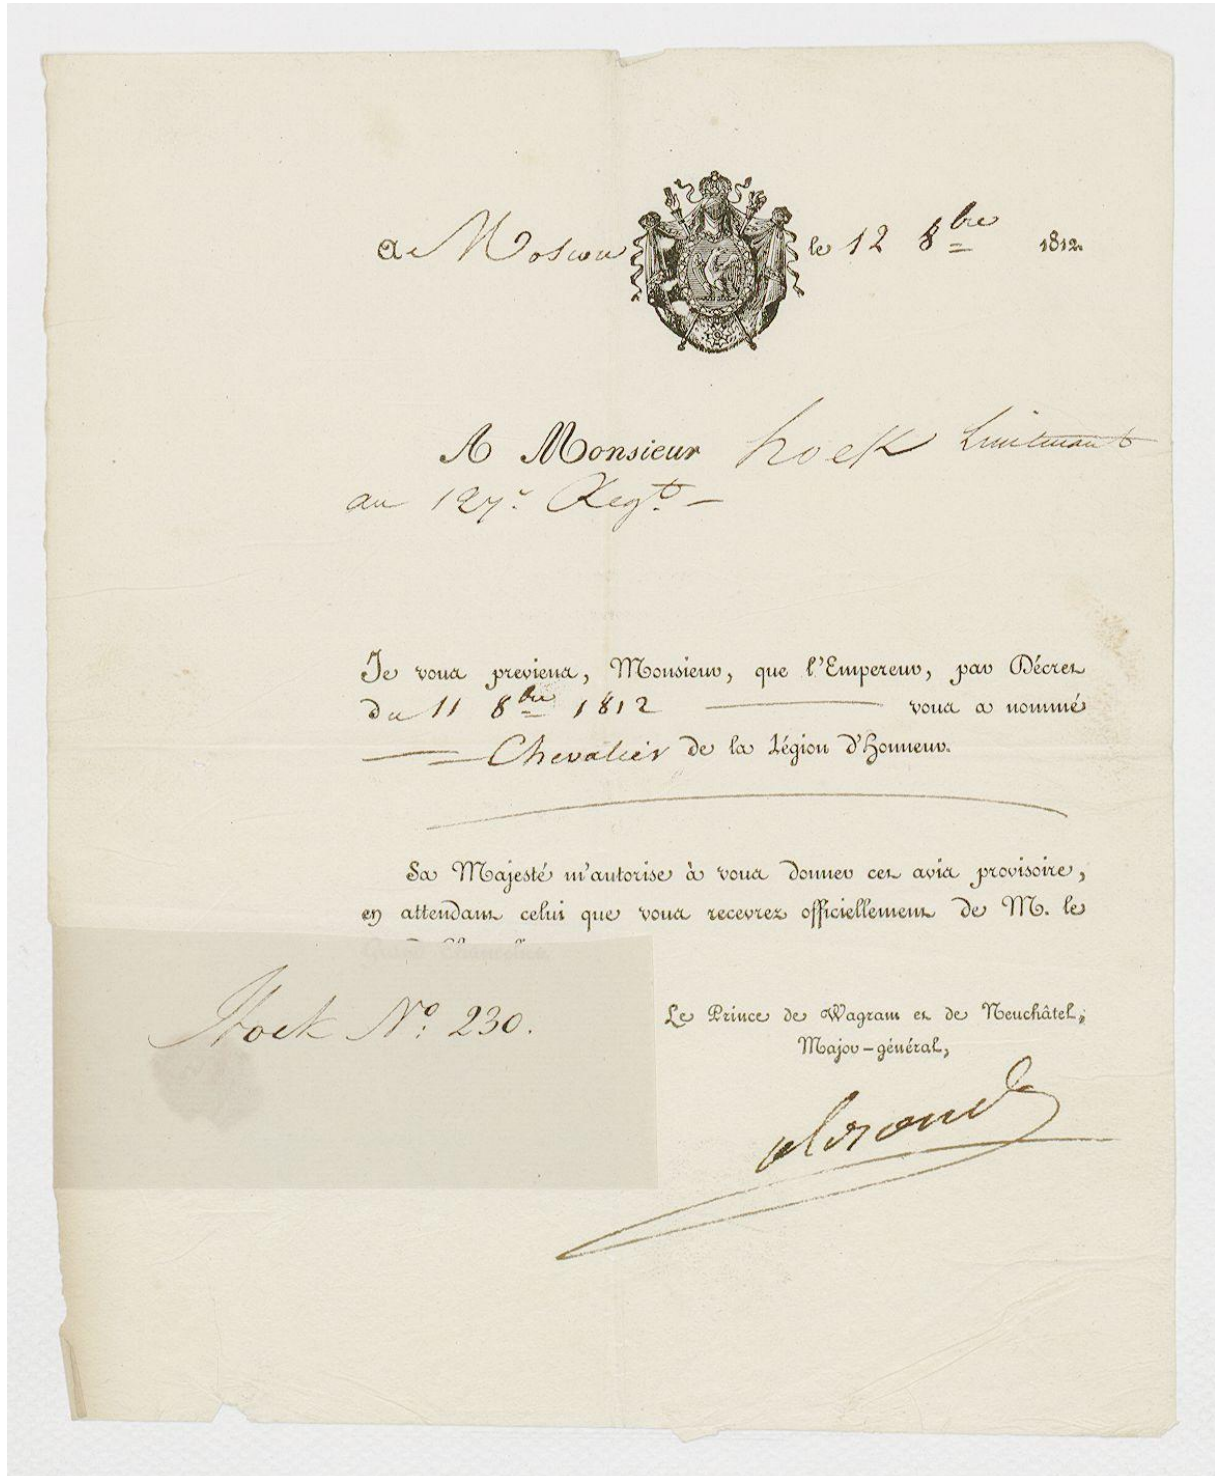 A Moscou le 12 8bre 1812.
A Monsieur hoek Lieutenant
au 127e Regt. —
Je vous previens, Monsieur, que l'Empereur, par Décret
du 11 8bre 1812 vous a nommé
Chevalier de la Légion d'Honneur.
Sa Majesté m'autorise à vous donner cet avis provisoire,
en attendant celui que vous recevrez officiellement de M. le
Grand Chancelier.
Hoek No. 230.
Le Prince de Wagram et de Neuchâtel,
Major-général,